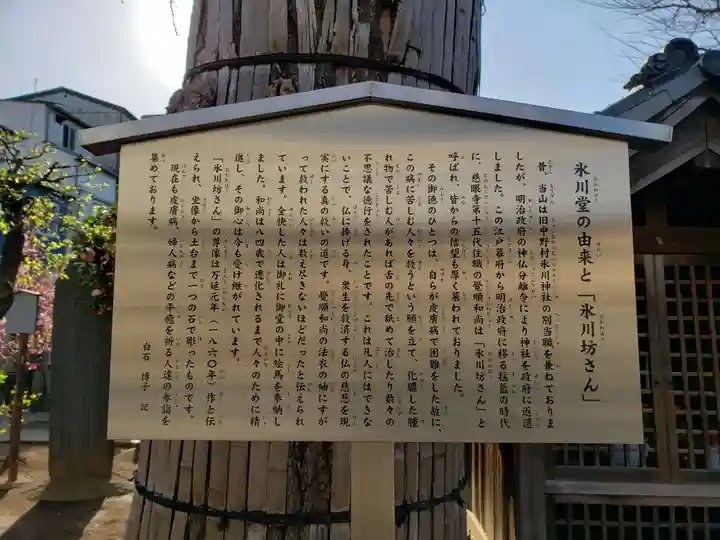 氷川堂の由来と「氷川坊さん」
昔、当山は旧中野村氷川神社の別当職を兼ねておりま
したが、明治政府の神仏分離令により神社を政府に返還
しました。この江戸幕府から明治政府に移る揺籃の時代
に、慈眼寺第十五代住職の覺順和尚は「氷川坊さん」と
呼ばれ、皆からの信望も厚く慕われておりました。
その御徳のひとつは、自らが皮膚病で困難をした故に、
この病に苦しむ人々を救うという願を立て、化膿した腫
れ物で苦しむ人があれば舌の先で舐めて治したり数々の
不思議な徳行をされたことです。これは凡人にはできな
いことで、仏に捧げる身、衆生を救済する仏の慈悲を現
実にする真の救いの道です。覺順和尚の法衣の袖にすが
って救われた人々は数え尽きないほどだったと伝えられ
ています。全快した人は御礼に御堂の中に絵馬を奉納し
ました。和尚は八四歳で遷化されるまで人々のために精
進し、その御心は今も受け継がれています。
「氷川坊さん」の尊像は万延元年（一八六〇年）作と伝
えられ、坐像から土台まで一つの石で彫ったものです。
現在も皮膚病、婦人病などの平癒を祈る人達の参詣を
集めております。
白石 博子 記